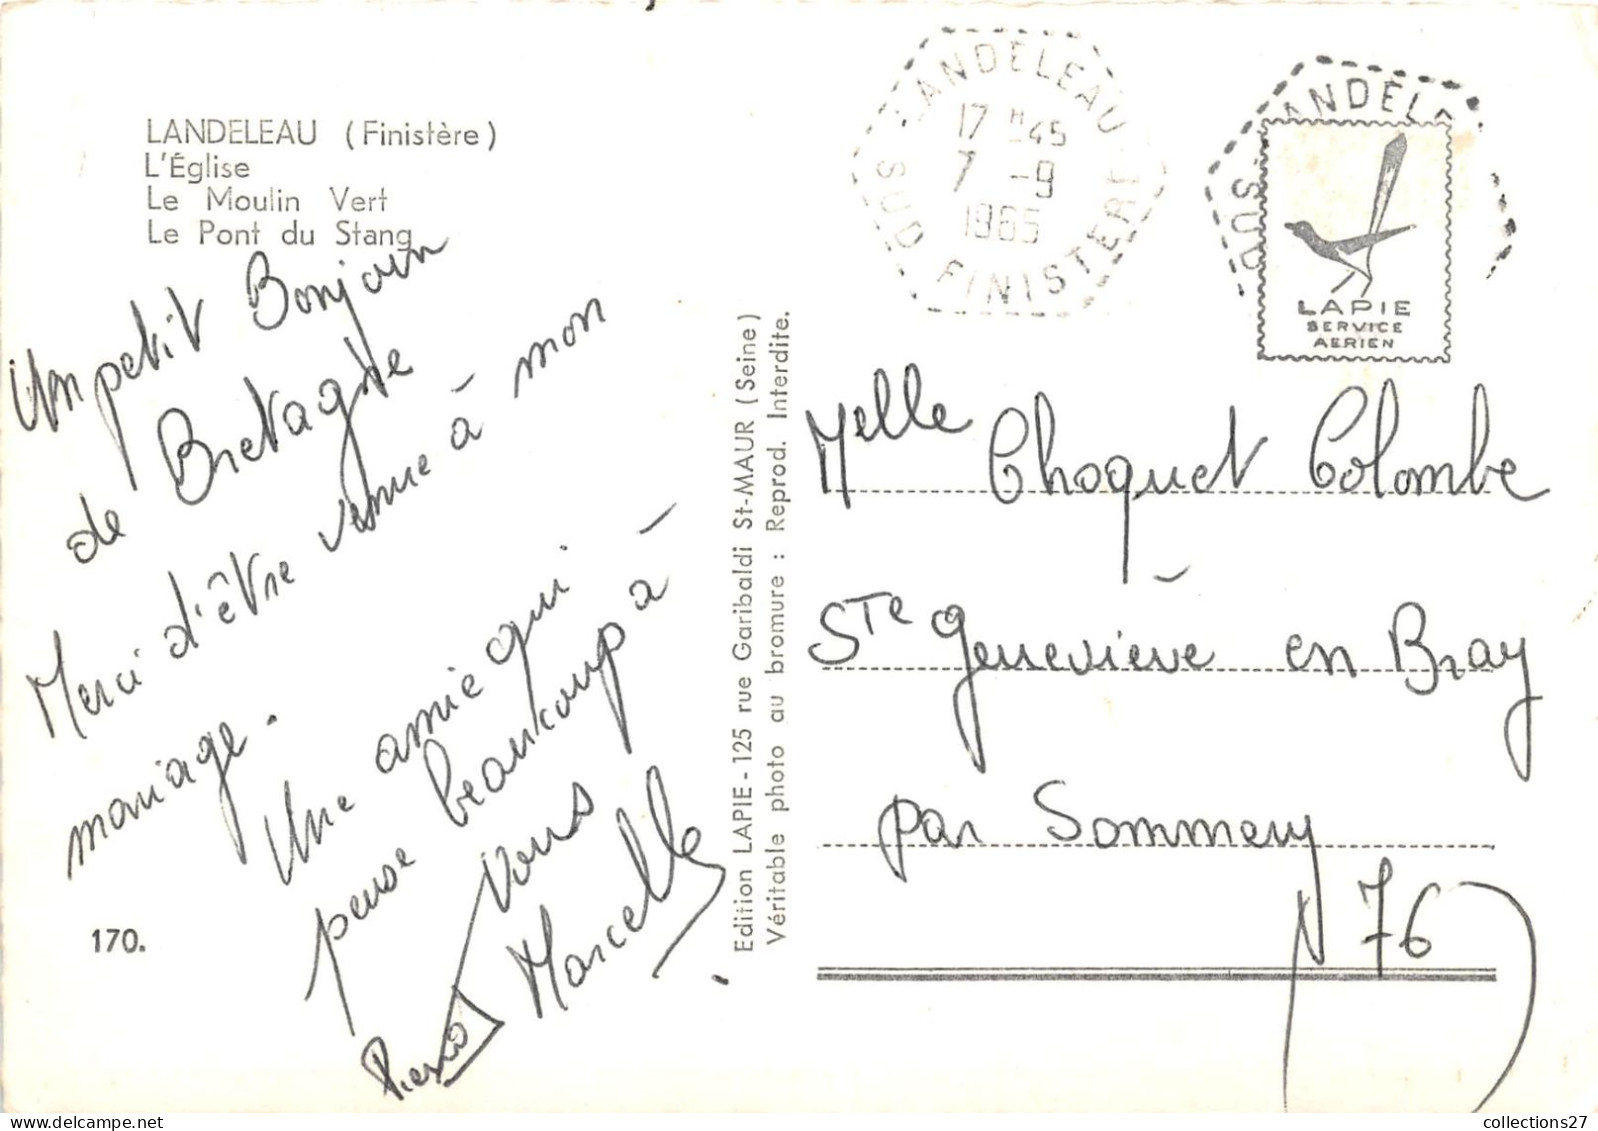 LANDELEAU (Finistère)
L'Église
Le Moulin Vert
Le Pont du Stang
Un petit Bonjour
de Bretagne
Merci d'être venue à mon
mariage.
Une amie qui
pense beaucoup à
vous
Marcelle
170.
Edition LAPIE - 125 rue Garibaldi St-MAUR (Seine)
Véritable photo au bromure : Reprod. Interdite.
LANDELEAU
17 H 45
7 -9
1965
SUD FINISTERE
ANDELE
SUD
LAPIE
SERVICE
AERIEN
Melle Choquet Colombe
Ste Geneviève en Bray
par Sommery
76
collections27